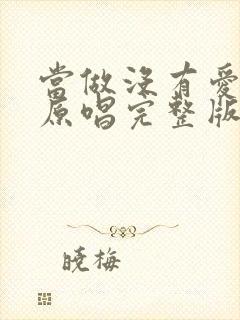 當做沒有愛
原唱完整版
曉梅